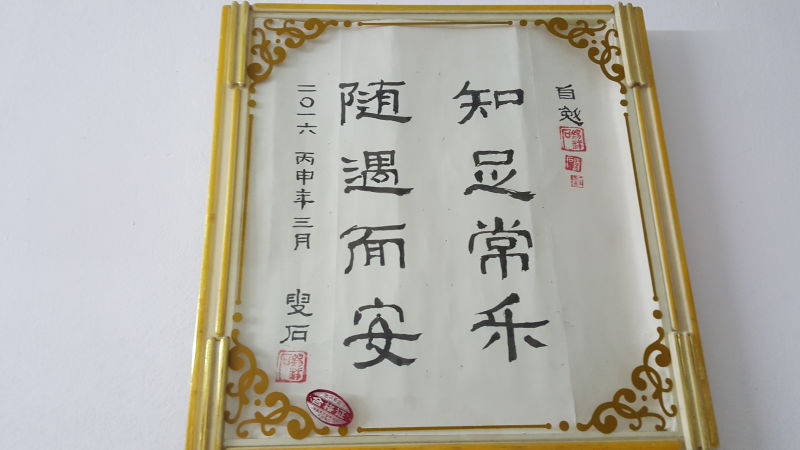 自勉
知足常乐
随遇而安
二〇一六 丙申年三月 叟石
合格证